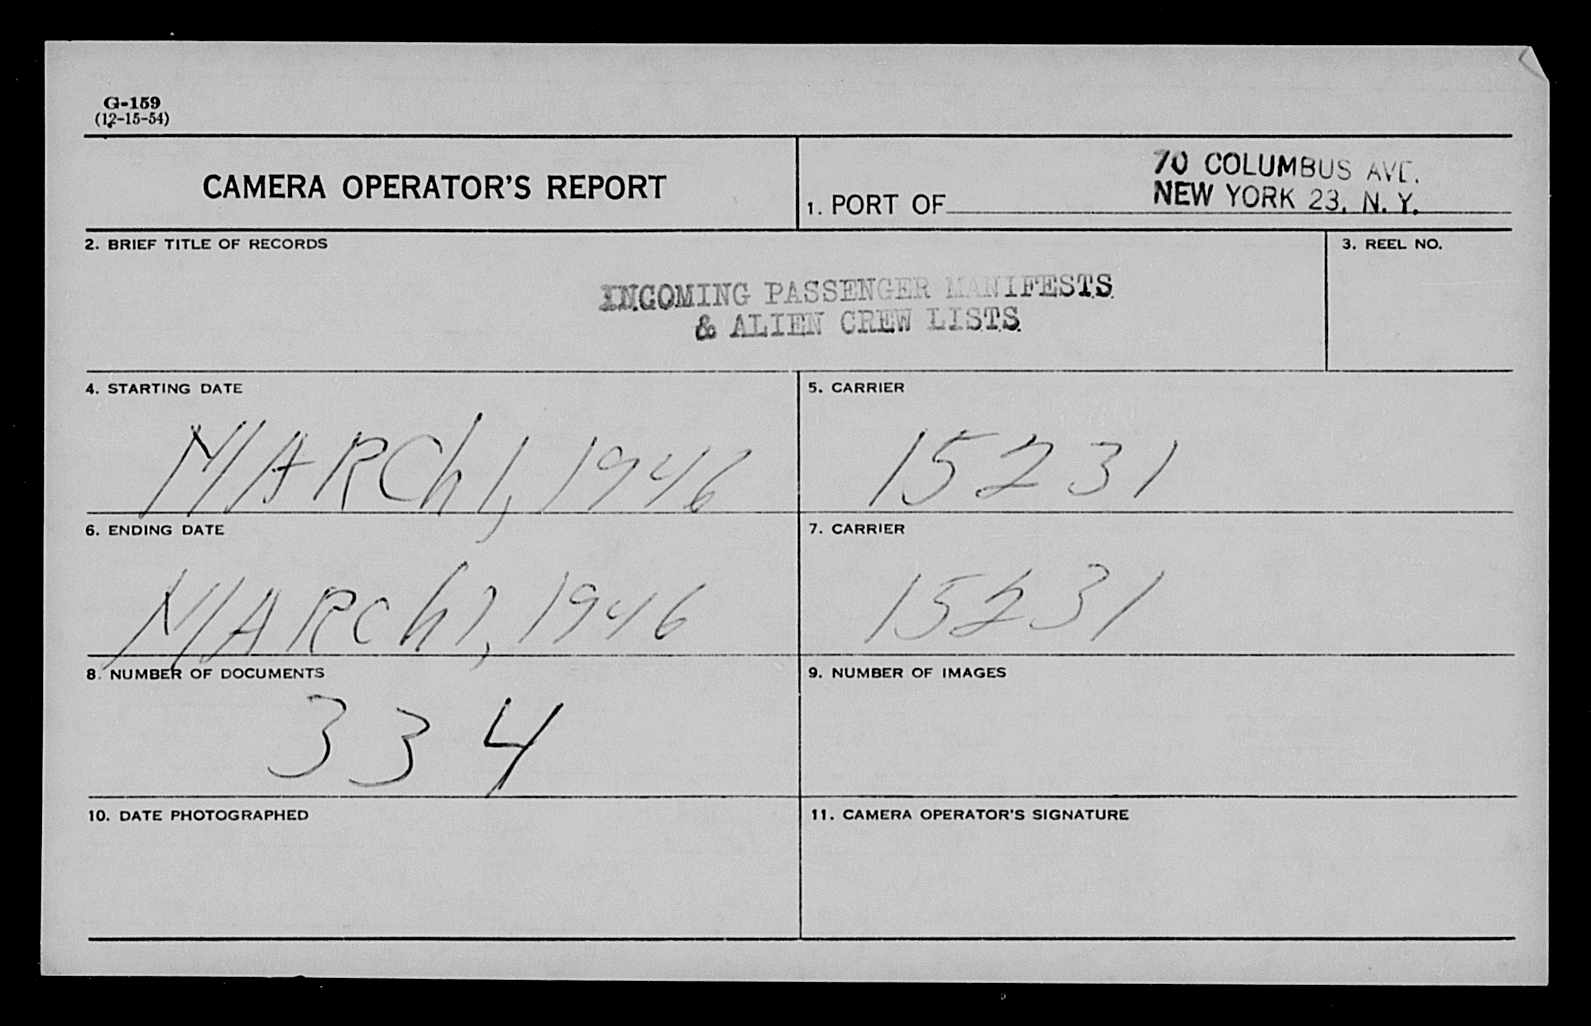 G-159
(12-15-54)
CAMERA OPERATOR'S REPORT
70 COLUMBUS AVE.
1. PORT OF NEW YORK 23, N. Y.
2. BRIEF TITLE OF RECORDS
3. REEL NO.
INCOMING PASSENGER MANIFESTS
& ALIEN CREW LISTS
4. STARTING DATE
5. CARRIER
MARCh 1, 1946
15231
6. ENDING DATE
7. CARRIER
MARCh 1, 1946
15231
8. NUMBER OF DOCUMENTS
9. NUMBER OF IMAGES
334
10. DATE PHOTOGRAPHED
11. CAMERA OPERATOR'S SIGNATURE